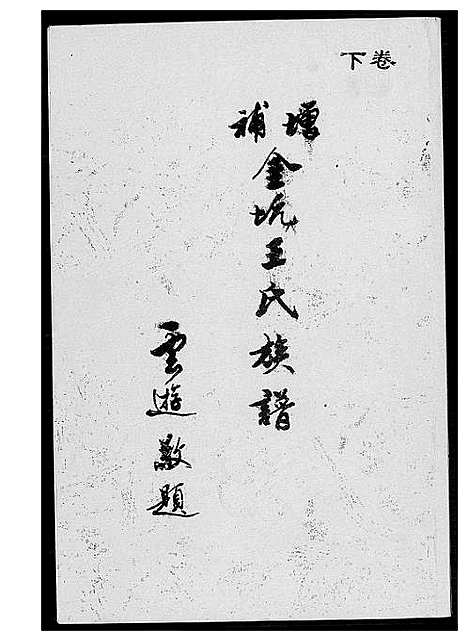 下卷
增補
金坑王氏族譜
雲遊敬題